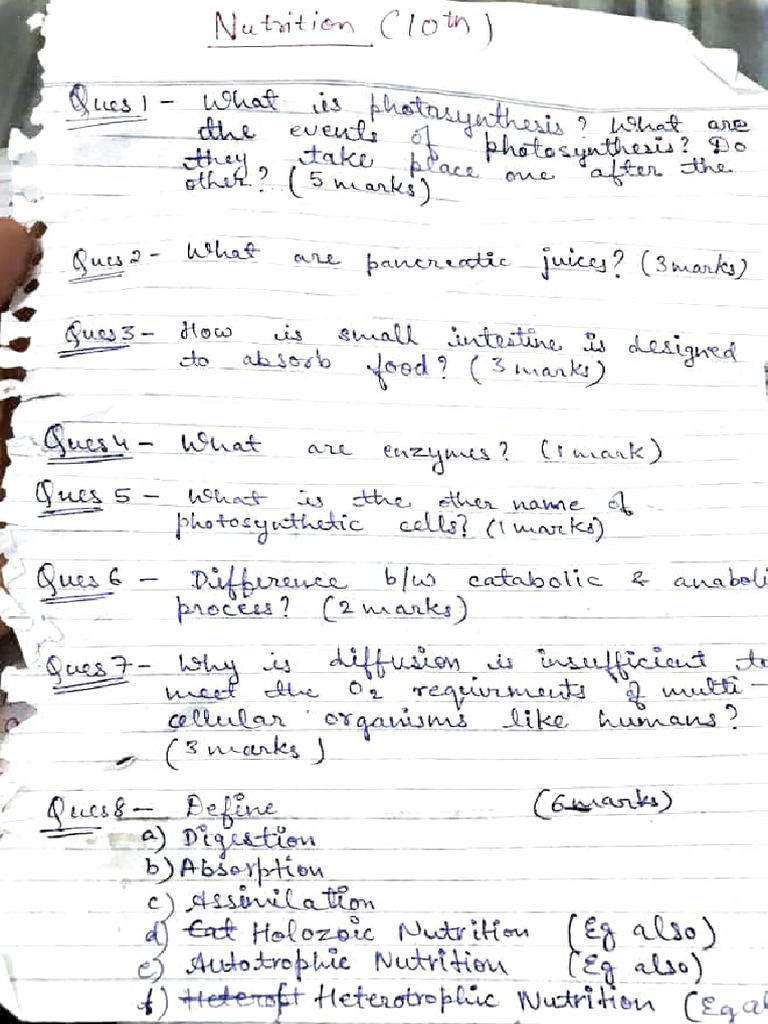 Nutrition (10th)
Ques 1 - What is photosynthesis? What are
the events of photosynthesis? Do
they take place one after the
other? (5 marks)
Ques 2 - What are pancreatic juices? (3 marks)
Ques 3 - How is small intestine is designed
to absorb food? (3 marks)
Ques 4 - What are enzymes? (1 mark)
Ques 5 - What is the other name of
photosynthetic cells? (1 marks)
Ques 6 - Difference b/w catabolic & anaboli
process? (2 marks)
Ques 7 - Why is diffusion is insufficient to
meet the O2 requirments of multi-
cellular organisms like humans?
(3 marks)
Ques 8 - Define (6 marks)
a) Digestion
b) Absorption
c) Assimilation
d) Holozoic Nutrition (Eg also)
e) Autotrophic Nutrition (Eg also)
f) Heterotrophic Nutrition (Eg al